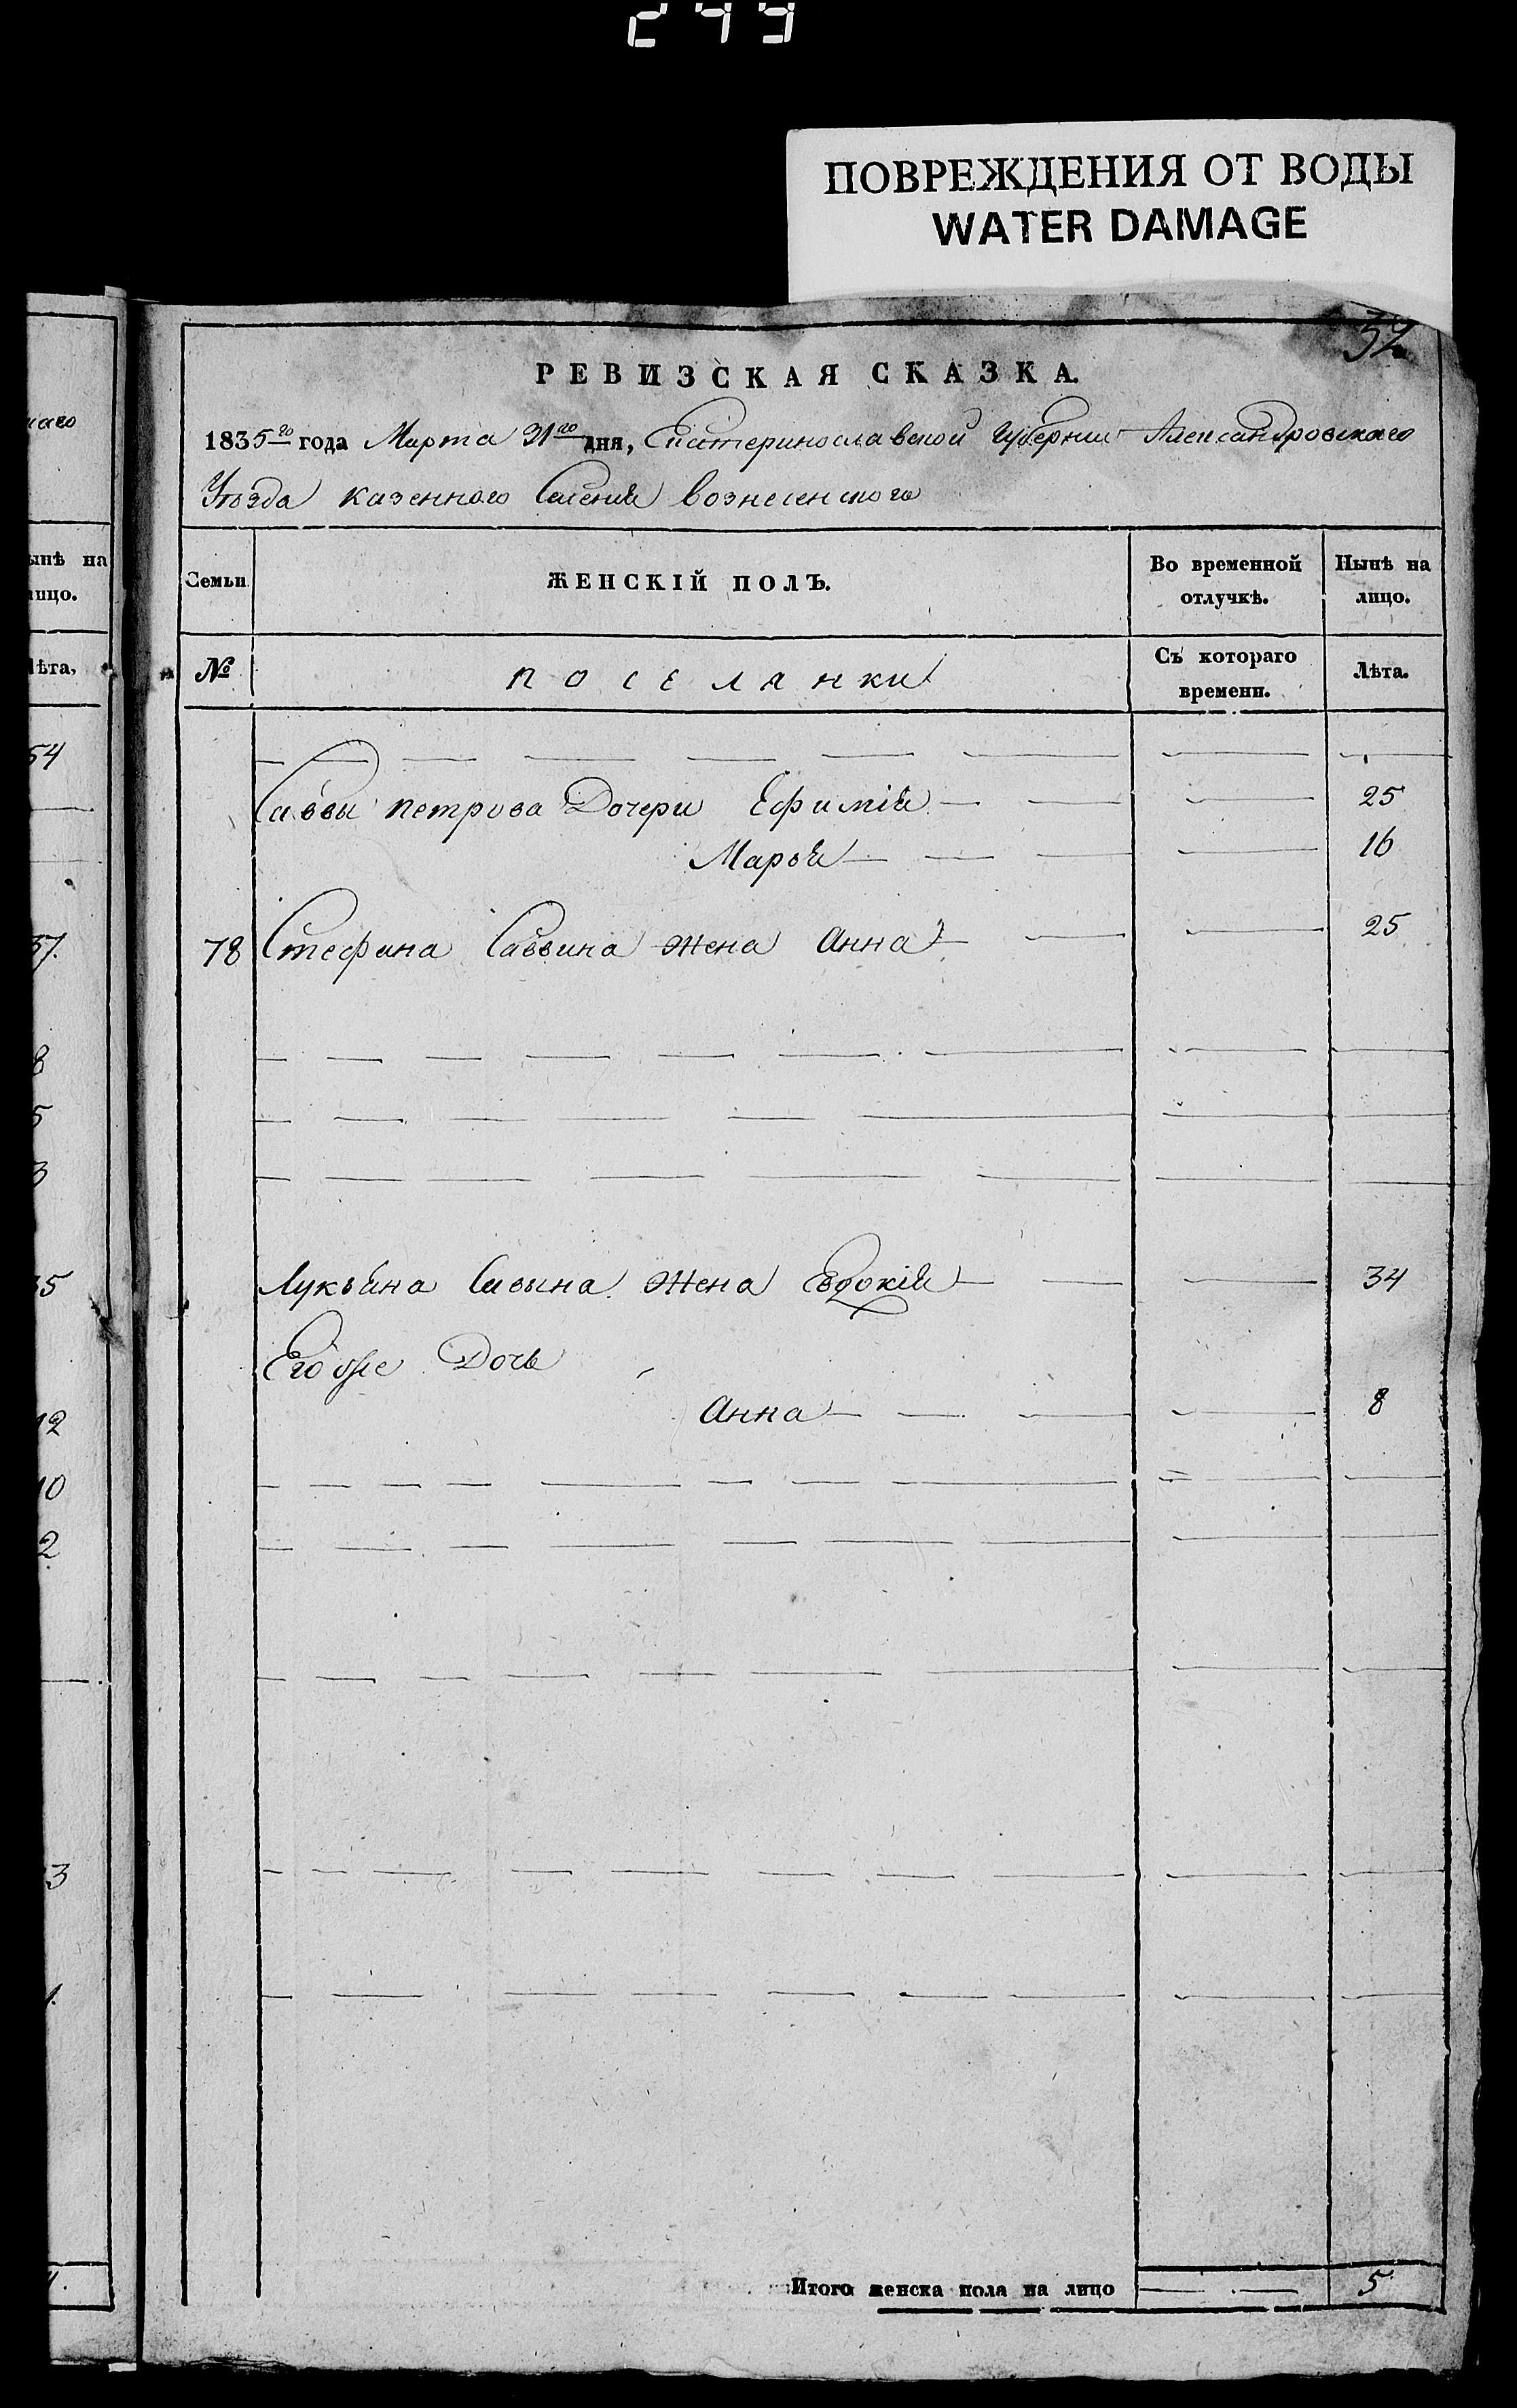 249
ПОВРЕЖДЕНИЯ ОТ ВОДЫ
WATER DAMAGE
РЕВИЗСКАЯ СКАЗКА.
1835го года Марта 31го дня, Екатеринославской Губернии Александровскаго
Уѣзда казенного Селенія вознесенского
Семьи
ЖЕНСКІЙ ПОЛЪ.
Во временной отлучкѣ.
Нынѣ на лицо.
№
поселянки
Съ котораго времени.
Лѣта.
Саввы петрова Дочери Ефимія 25
Марья 16
78 Стефана Саввина жена Анна 25
Лукьяна Савина жена Евдокія 34
Его же Дочь
Анна 8
Итого женска пола на лицо 5
наго
ынѣ на
ицо.
ѣта,
54
37.
8
5
3
35
12
10
2
3
1.